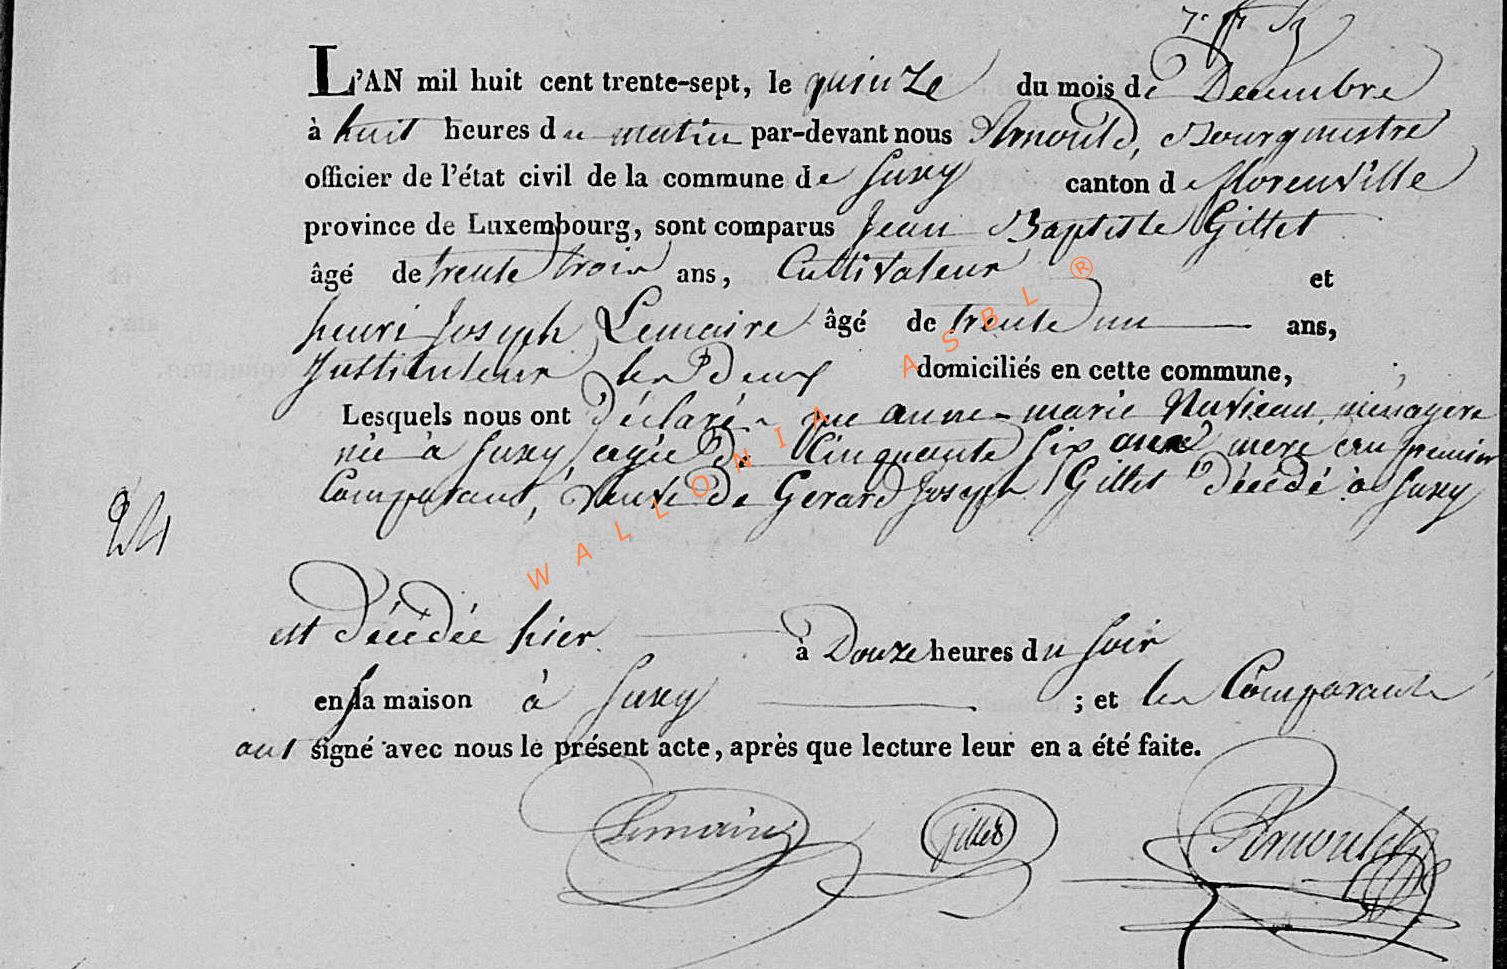 L'AN mil huit cent trente-sept, le quinze du mois de Decembre
à huit heures du matin par-devant nous Arnould, Bourgmestre
officier de l'état civil de la commune de Suxy canton de florenville
province de Luxembourg, sont comparus Jean Baptiste Gillet
âgé de trente trois ans, Cultivateur et
henri Joseph Lemaire âgé de trente un ans,
Instituteur les Deux domiciliés en cette commune,
Lesquels nous ont Déclaré que anne-marie Nuvieau ménagere
née à Suxy agée De Cinquante six ans mere du premier
Comparant, Veuve De Gerard Joseph Gillet Décédé à Suxy
24
est Décédée hier à Douze heures du soir
en sa maison à Suxy ; et les Comparants
ont signé avec nous le présent acte, après que lecture leur en a été faite.
Lemaire Gillet Arnould
WALLONIA ASBL ®